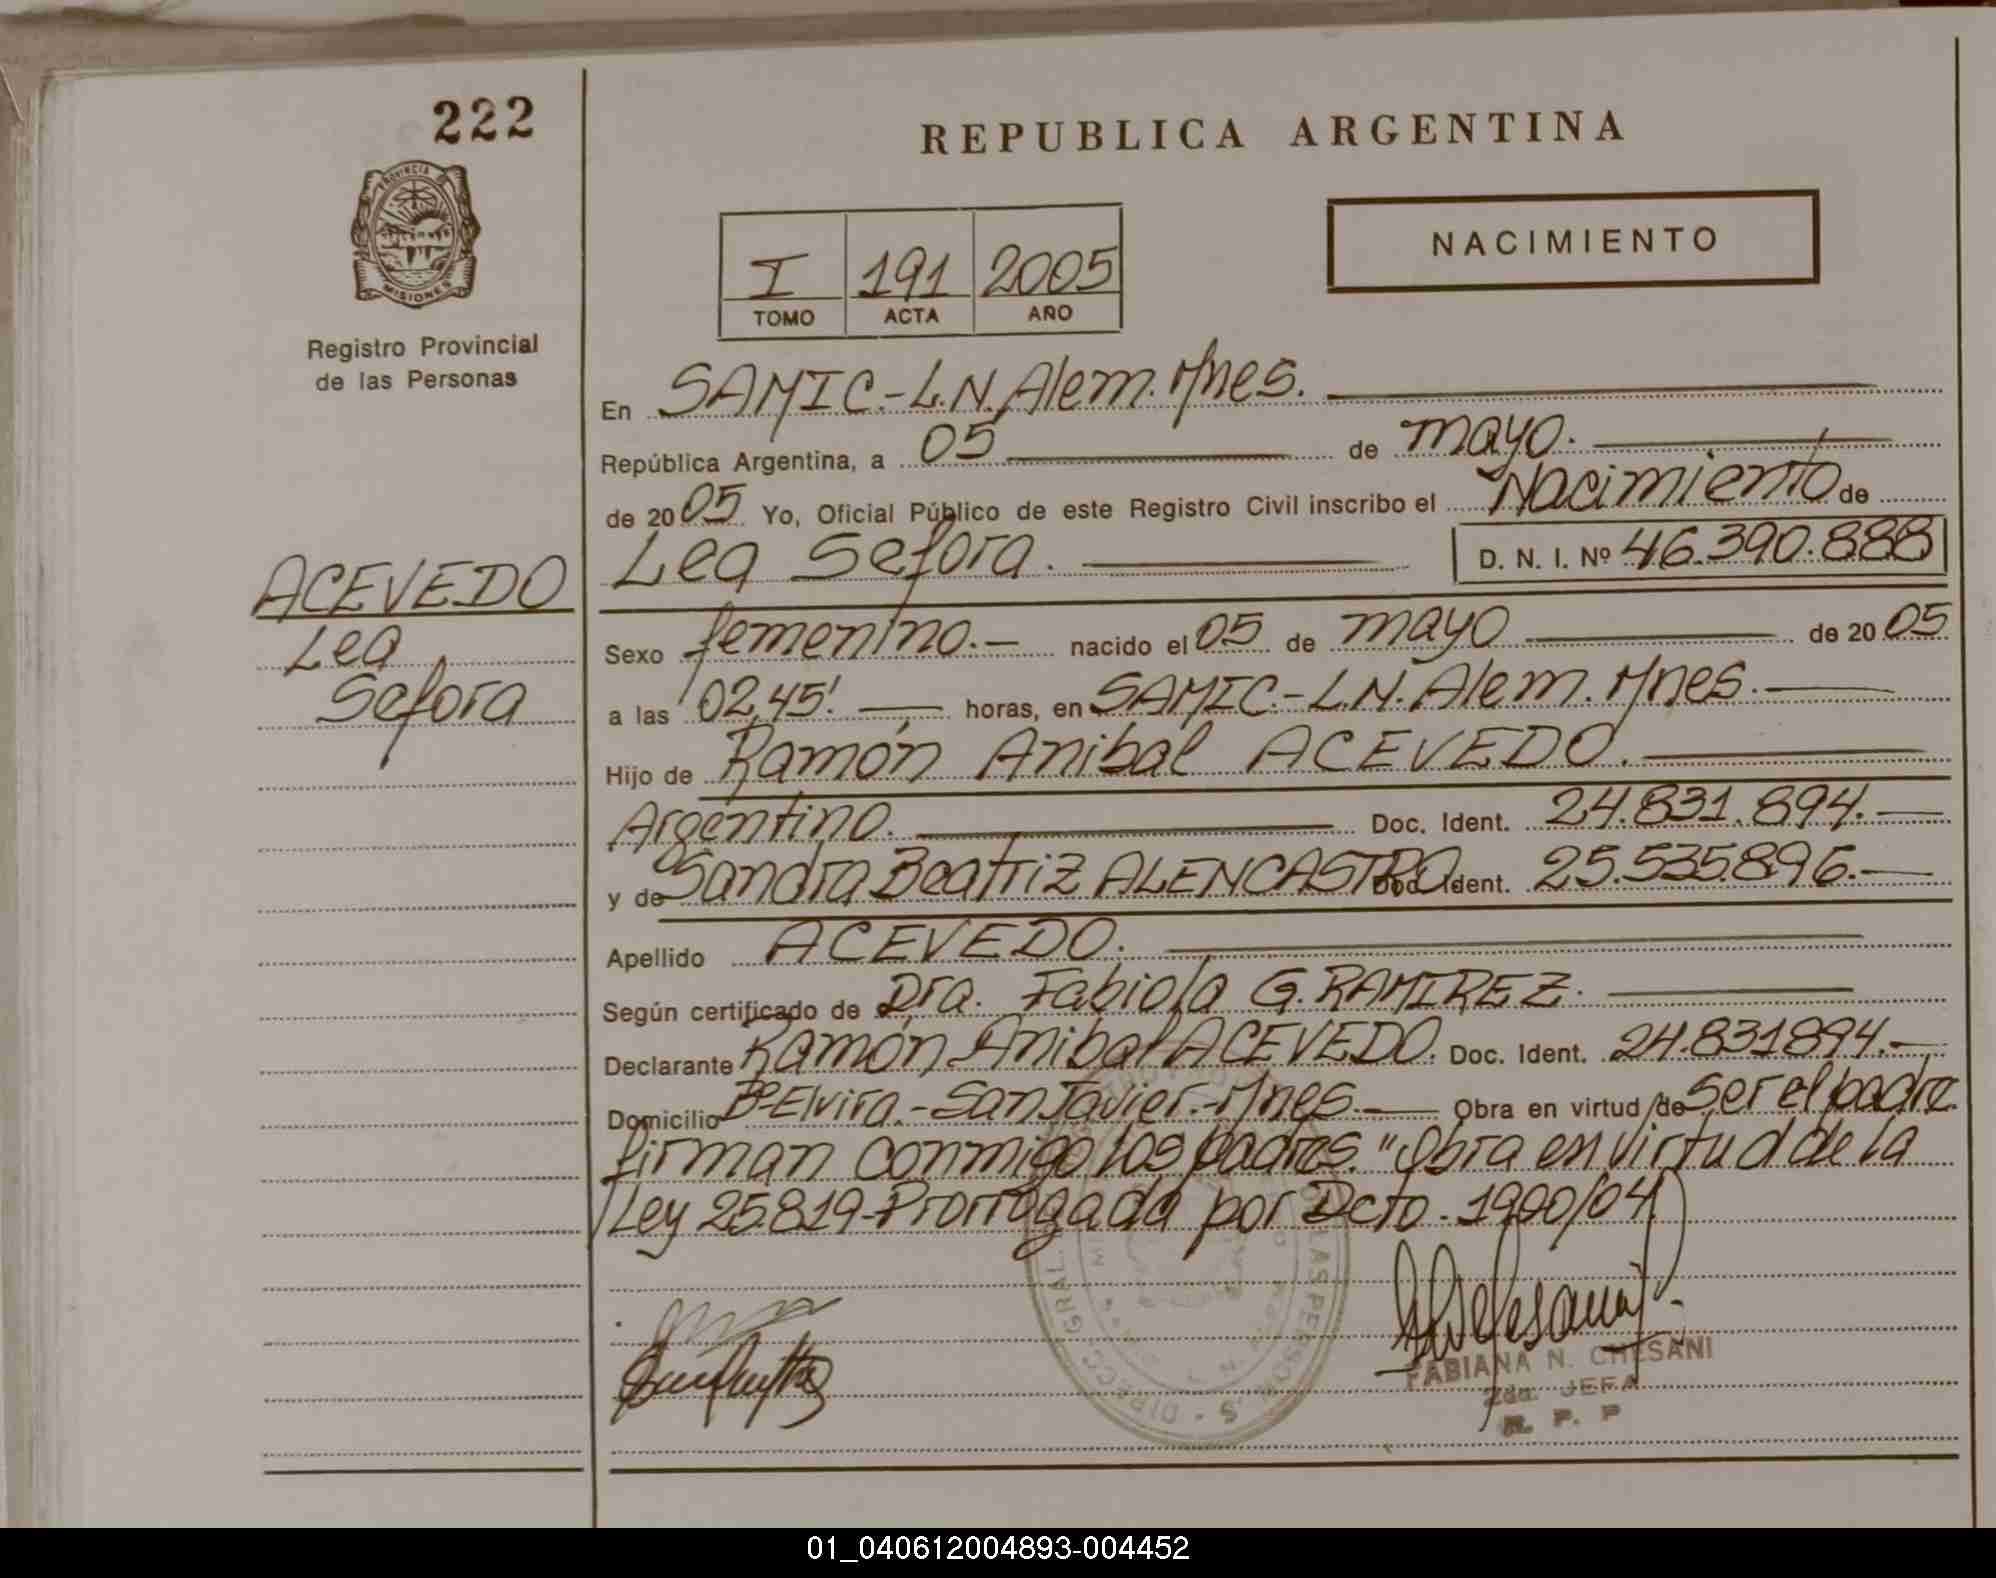 222
REPUBLICA ARGENTINA
PROVINCIA DE
MISIONES
NACIMIENTO
I 191 2005
TOMO ACTA AÑO
Registro Provincial
de las Personas
En SAMIC.-L.N.Alem.Mnes.
República Argentina, a 05 de mayo.
de 2005 Yo, Oficial Público de este Registro Civil inscribo el Nacimiento de
Lea Sefora. D. N. I. Nº 46.390.888
ACEVEDO
Lea
Sefora
Sexo femenino.- nacido el 05 de mayo de 2005
a las 02,45' horas, en SAMIC.-L.N.Alem.Mnes.
Hijo de Ramón Anibal ACEVEDO.
Argentino. Doc. Ident. 24.831.894.-
y de Sandra Beatriz ALENCASTRO Doc. Ident. 25.535.896.-
Apellido ACEVEDO.
Según certificado de Dra. Fabiola G. RAMIREZ.
Declarante Ramón Anibal ACEVEDO. Doc. Ident. 24.831894.-
Domicilio Bº-Elvira.-San Javier.-Mnes.- Obra en virtud de Ser el padre
firman conmigo los padres. "Obra en virtud de la
Ley 25.819-Prorrogada por Dcto. 1900/04
FABIANA N. CHESANI
2da. JEFA
R. P. P
01_040612004893-004452